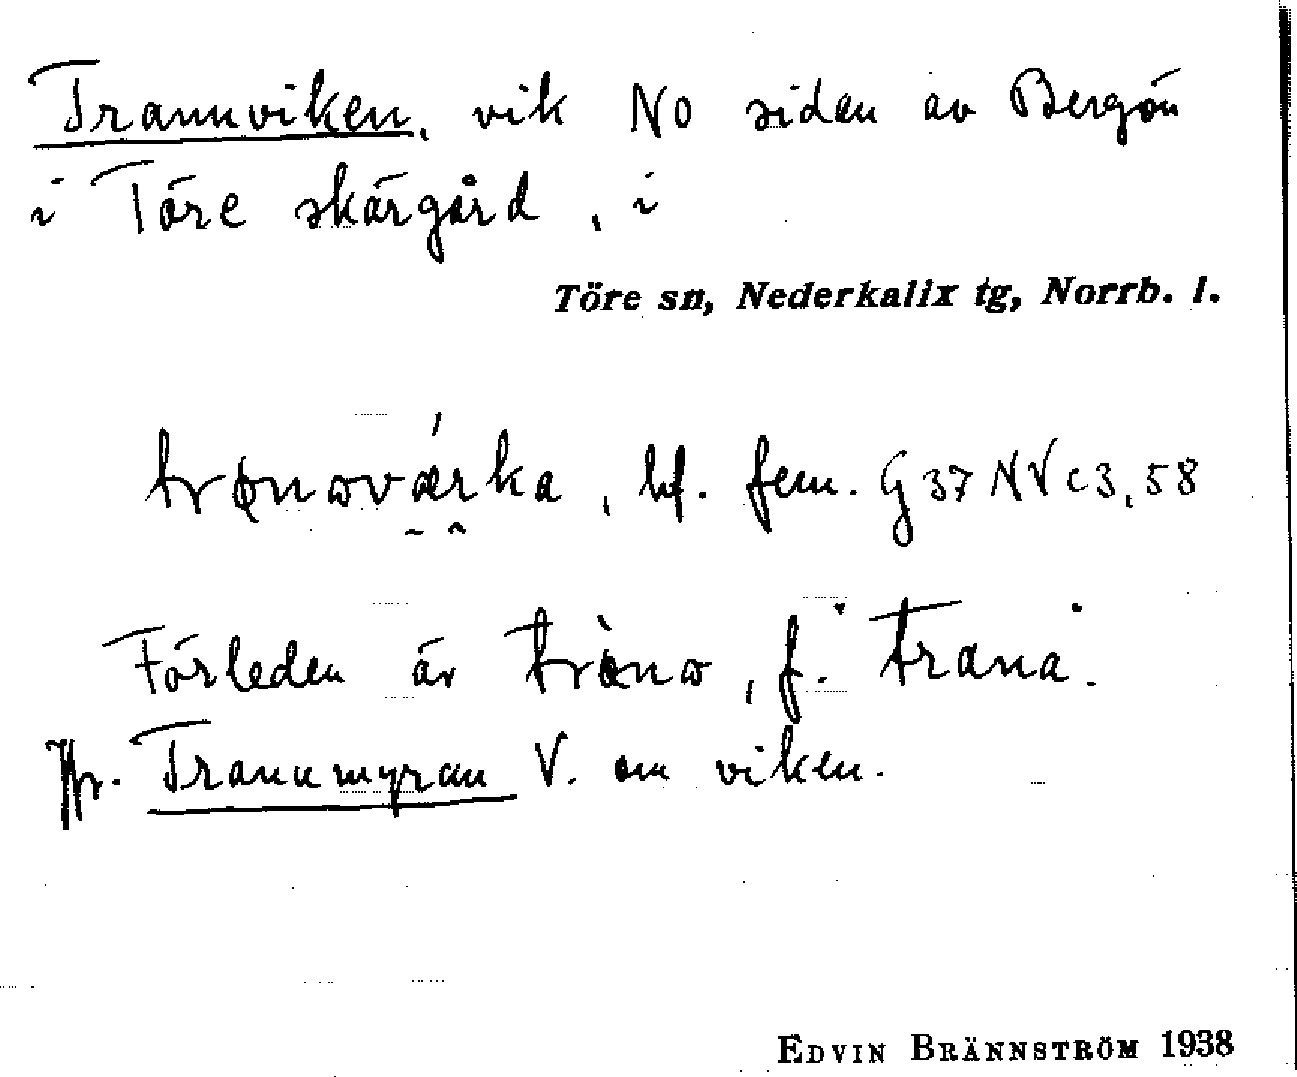 Trannviken, vik NO siden av Bergön
i Töre skärgård, i
Töre sn, Nederkalix tg, Norrb. l.
bf. fem. G 37 NV c3, 58
Förleden är f. 'trana'.
Jfr. Trannmyran V. om viken.
EDVIN BRÄNNSTRÖM 1938